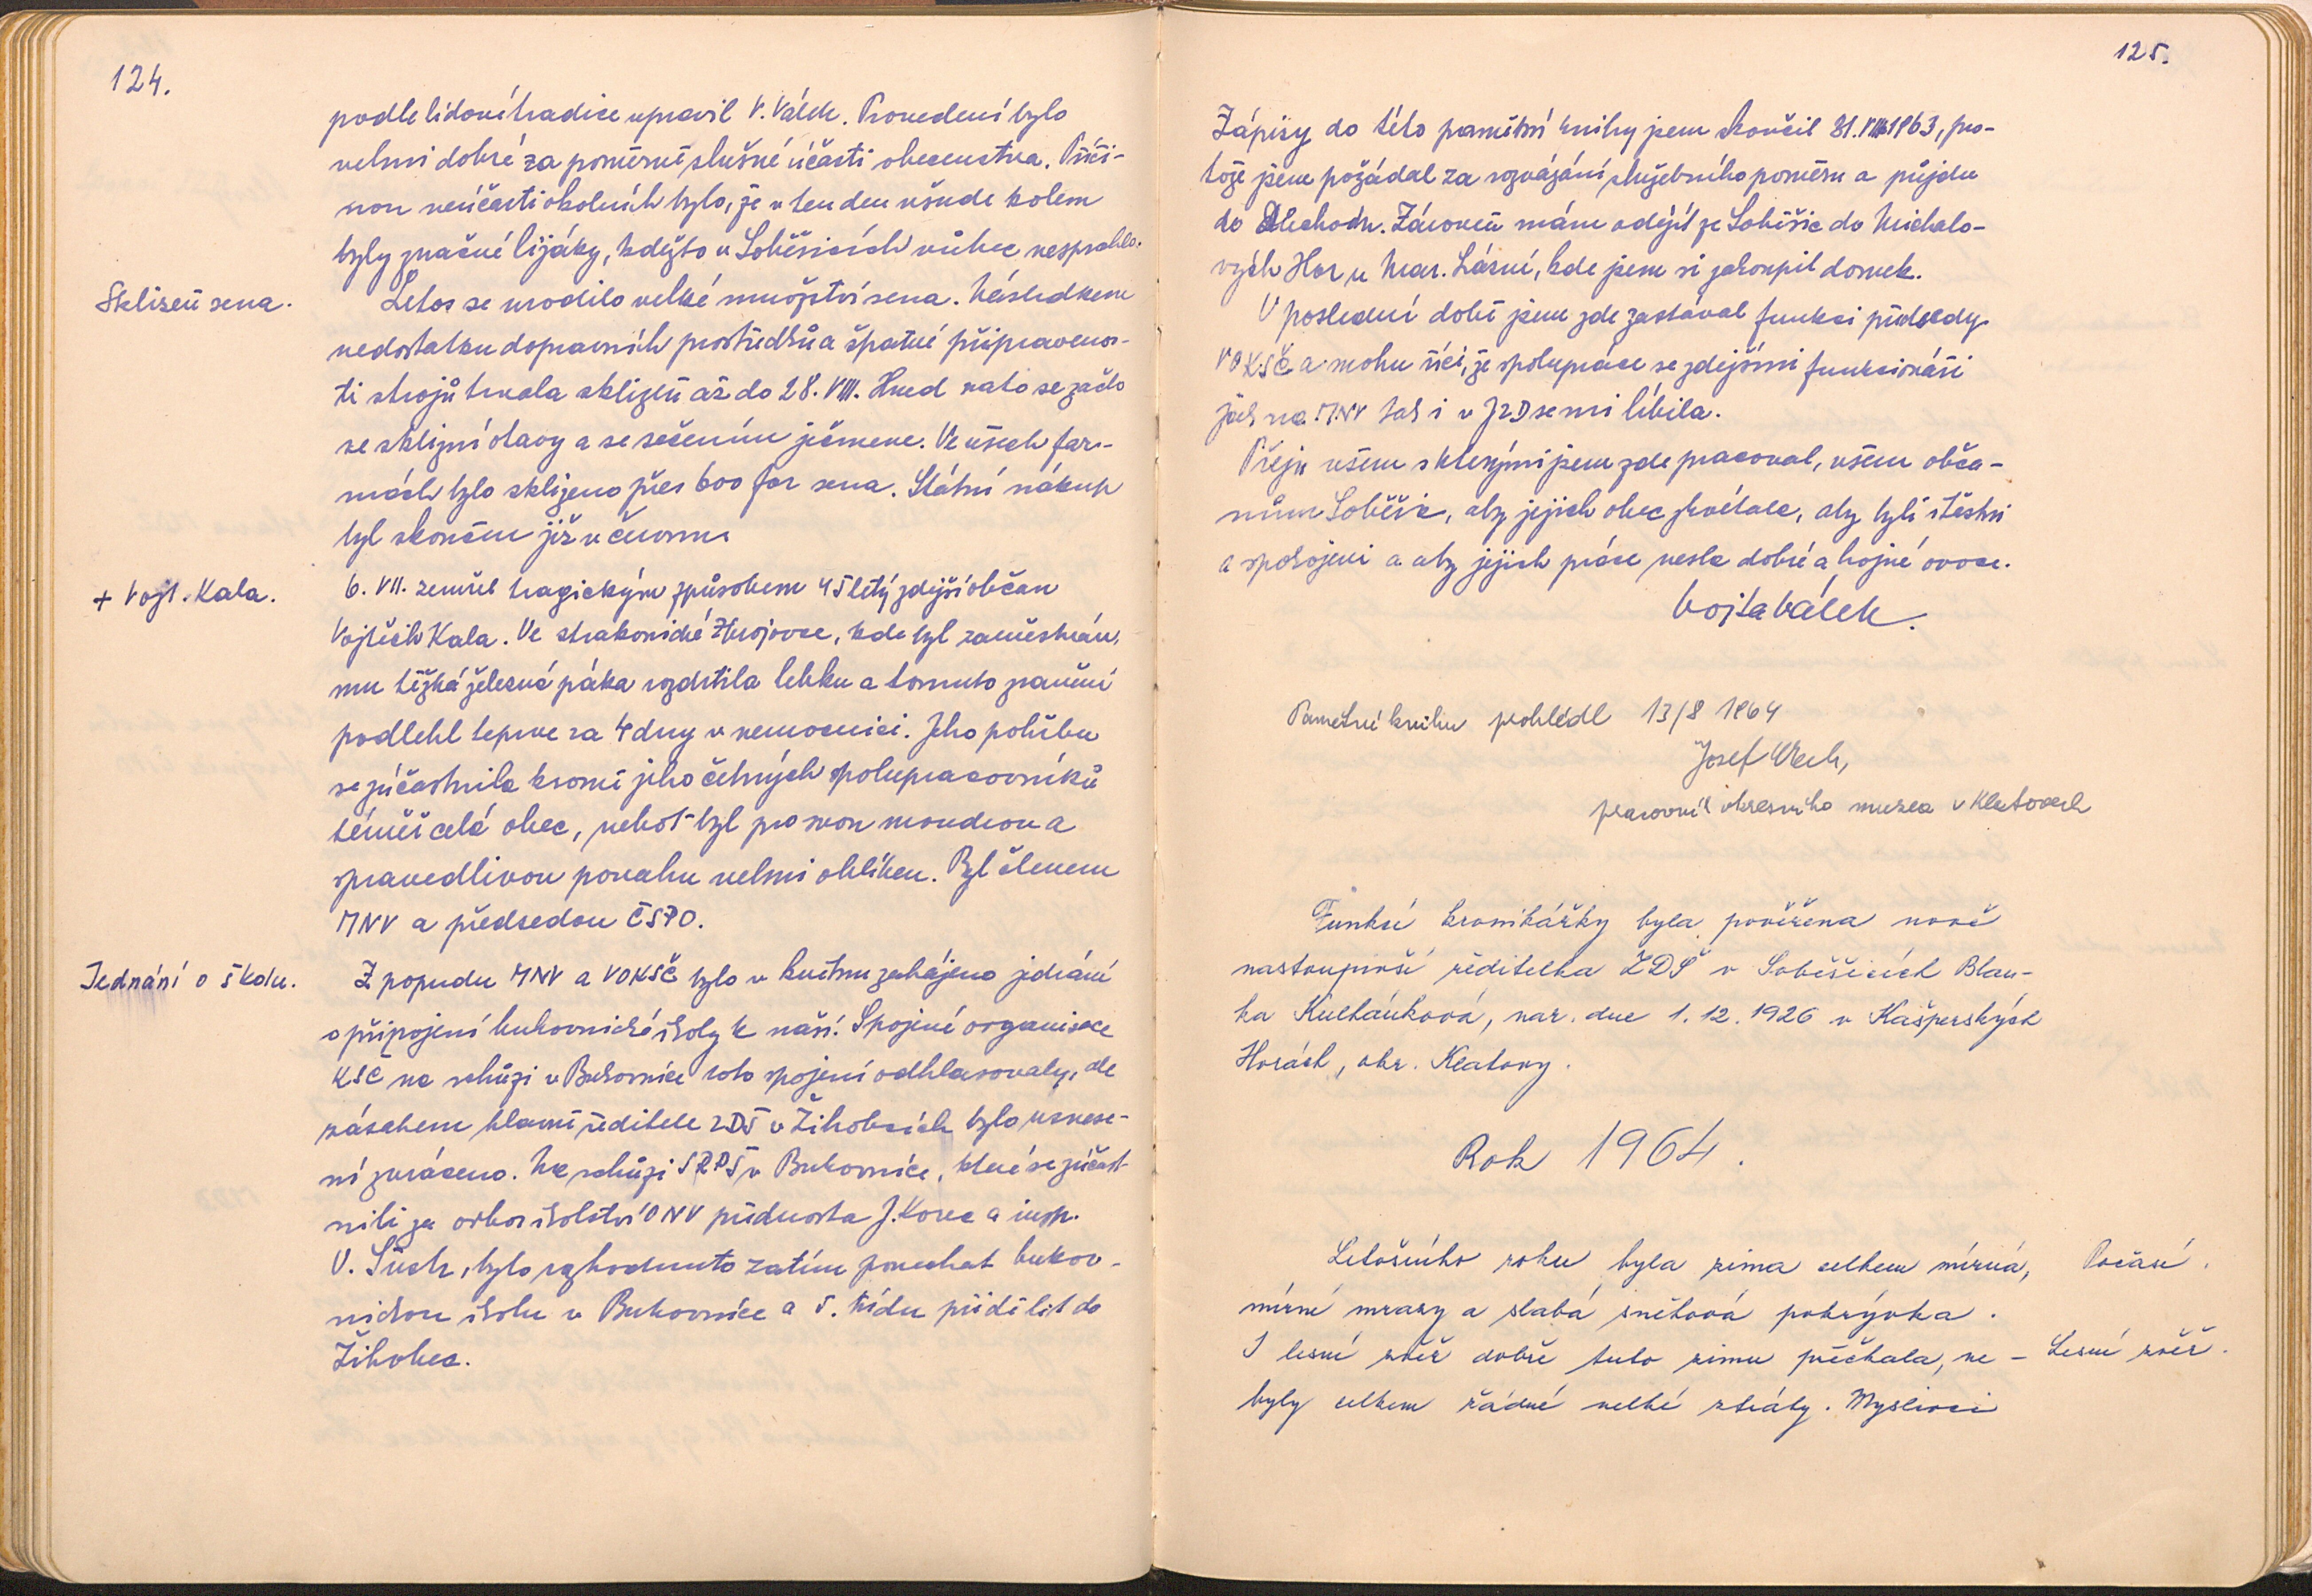 124.
podle lidové tradice upravil V. Válek. Provedení bylo
velmi dobré za poměrně slušné účasti obecenstva. Příči-
nou neúčasti okolních bylo, že v ten den všude kolem
byly značné lijáky, kdežto v Soběšicích vůbec nespadlo.
Sklizeň sena.
Letos se urodilo velké množství sena. Následkem
nedostatku dopravních prostředků a špatné připravenos-
ti strojů trvala sklizeň až do 28. VIII. Hned nato se začlo
se sklizní otavy a se sečením ječmene. Ve všech far-
mách bylo sklizeno přes 600 for sena. Státní nákup
byl skončen již v červnu.
+ Vojt. Kala.
6. VII. zemřel tragickým způsobem 45letý zdejší občan
Vojtěch Kala. Ve strakonické Zbrojovce, kde byl zaměstnán,
mu těžká železná páka rozdrtila lebku a tomuto zranění
podlehl teprve za 4 dny v nemocnici. Jeho pohřbu
se zúčastnila kromě jeho četných spolupracovníků
téměř celá obec, neboť byl pro svou moudrou a
spravedlivou povahu velmi oblíben. Byl členem
MNV a předsedou ČSPO.
Jednání o školu.
Z popudu MNV a VOKSČ bylo v květnu zahájeno jednání
o připojení bukovnické školy k naší. Spojené organisace
KSČ na schůzi v Bukovníce toto spojení odhlasovaly, ale
zásahem hlavně ředitele ZDŠ v Žihobcích bylo usnese-
ní zvráceno. Na schůzi SRPŠ v Bukovníce, které se zúčast-
nili za odbor školství ONV přednosta J. Korec a insp.
V. Šůch, bylo rozhodnuto zatím ponechat bukov-
nickou školu v Bukovníce a 5. třídu přidělit do
Žihobec.
125.
Zápisy do této pamětní knihy jsem skončil 31. VIII. 1963, pro-
tože jsem požádal za rozvázání služebního poměru a půjdu
do důchodu. Zároveň mám odejít ze Soběšic do Michalo-
vých Hor u Mar. Lázní, kde jsem si zakoupil domek.
V poslední době jsem zde zastával funkci předsedy
VOKSČ a mohu říci, že spolupráce se zdejšími funkcionáři
jak na MNV tak i v JZD se mi líbila.
Přeju všem s kterými jsem zde pracoval, všem obča-
nům Soběšic, aby jejich obec zkvétala, aby byli šťastni
a spokojeni a aby jejich práce nesla dobré a hojné ovoce.
Vojta Válek.
Pamětní knihu prohlédl 13/8 1964
Josef
pracovník okresního muzea v Klatovech
Funkcí kronikářky byla pověřena nově
nastoupivší ředitelka ZDŠ v Soběšicích Blan-
ka Kulhánková, nar. dne 1. 12. 1926 v Kašperských
Horách, okr. Klatovy.
Rok 1964.
Letošního roku byla zima celkem mírná,
Počasí.
mírné mrazy a slabá sněhová pokrývka.
I lesní zvěř dobře tuto zimu přečkala, ne-
Lesní zvěř.
byly celkem žádné velké ztráty. Myslivci